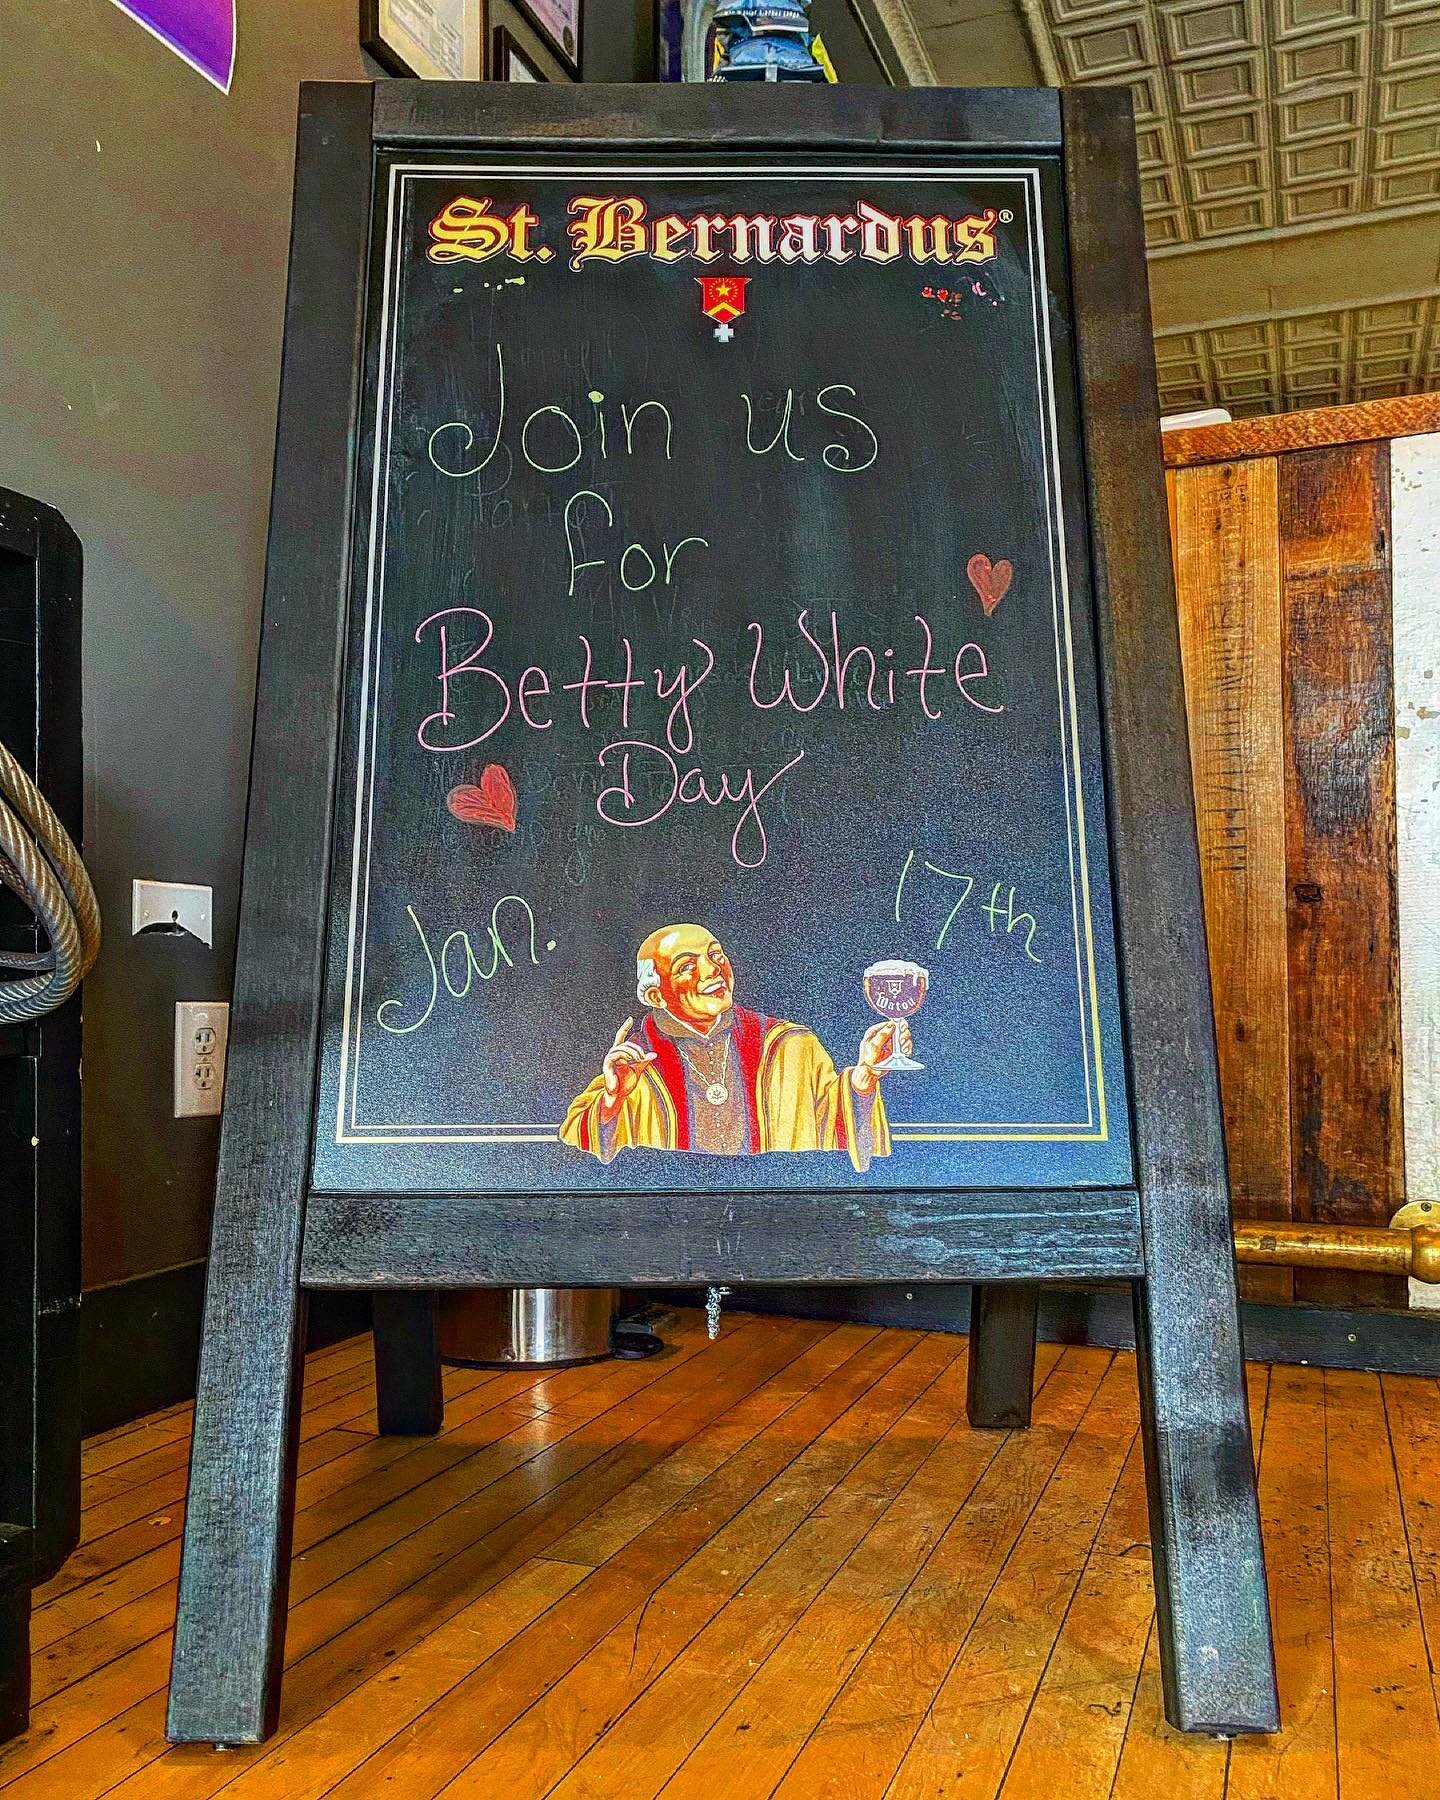 St. Bernardus®
Join us
for
Betty White
Day
Jan. 17th
Watou